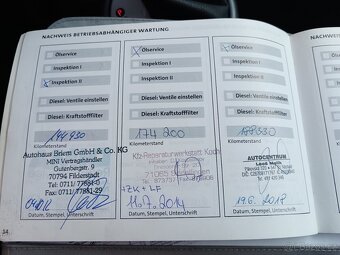 NACHWEIS BETRIEBSABHÄNGIGER WARTUNG
Ölservice
Inspektion I
Inspektion II
Diesel: Ventile einstellen
Diesel: Kraftstofffilter
144930
Kilometerstand
Autohaus Briem GmbH & Co. KG
MINI Vertragshändler
Gutenbergstr. 9
70794 Filderstadt
Tel.: 0711/77881-0
Fax: 0711/77881-29
Datum, Stempel, Unterschrift
Ölservice
Inspektion I
Inspektion II
Diesel: Ventile einstellen
Diesel: Kraftstofffilter
174 200
Kilometerstand
Kfz-Reparaturwerkstatt Koch
71065
+ZK + LF
11.7.2014
Datum, Stempel, Unterschrift
Ölservice
Inspektion I
Inspektion II
Diesel: Ventile einstellen
Diesel: Kraftstofffilter
Kilometerstand
AUTOCENTRUM
19.6.2018
Datum, Stempel, Unterschrift
34
NACHWEIS